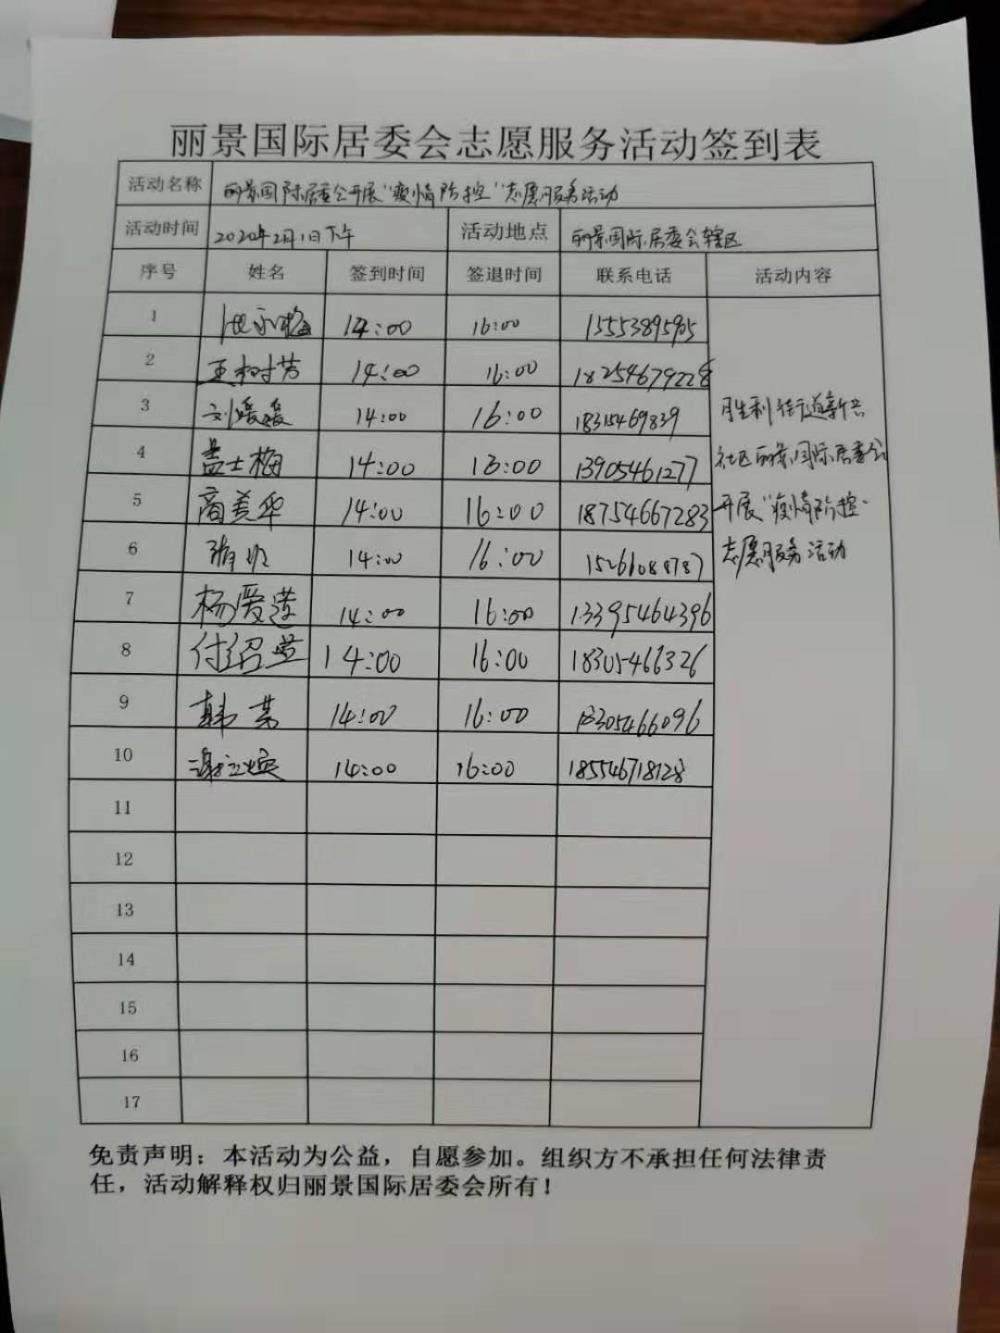 丽景国际居委会志愿服务活动签到表
活动名称 丽景国际居委会开展"疫情防控"志愿服务活动
活动时间 2020年2月1日下午 活动地点 丽景国际居委会辖区
序号 姓名 签到时间 签退时间 联系电话 活动内容
1 14:00 16:00 1555389595
2 14:00 16:00 18254679228
3 刘媛媛 14:00 16:00 18315469839
4 盖士梅 14:00 13:00 13905461277
5 商美华 14:00 16:00 18754667283
6 14:00 16:00 15261088787
7 杨爱莲 14:00 16:00 13395464396
8 付绍莹 14:00 16:00 18305466326
9 韩芸 14:00 16:00 18305466096
10 14:00 16:00 185546718128
胜利街道新兴
社区丽景国际居委会
开展"疫情防控"
志愿服务活动
11
12
13
14
15
16
17
免责声明：本活动为公益，自愿参加。组织方不承担任何法律责
任，活动解释权归丽景国际居委会所有！